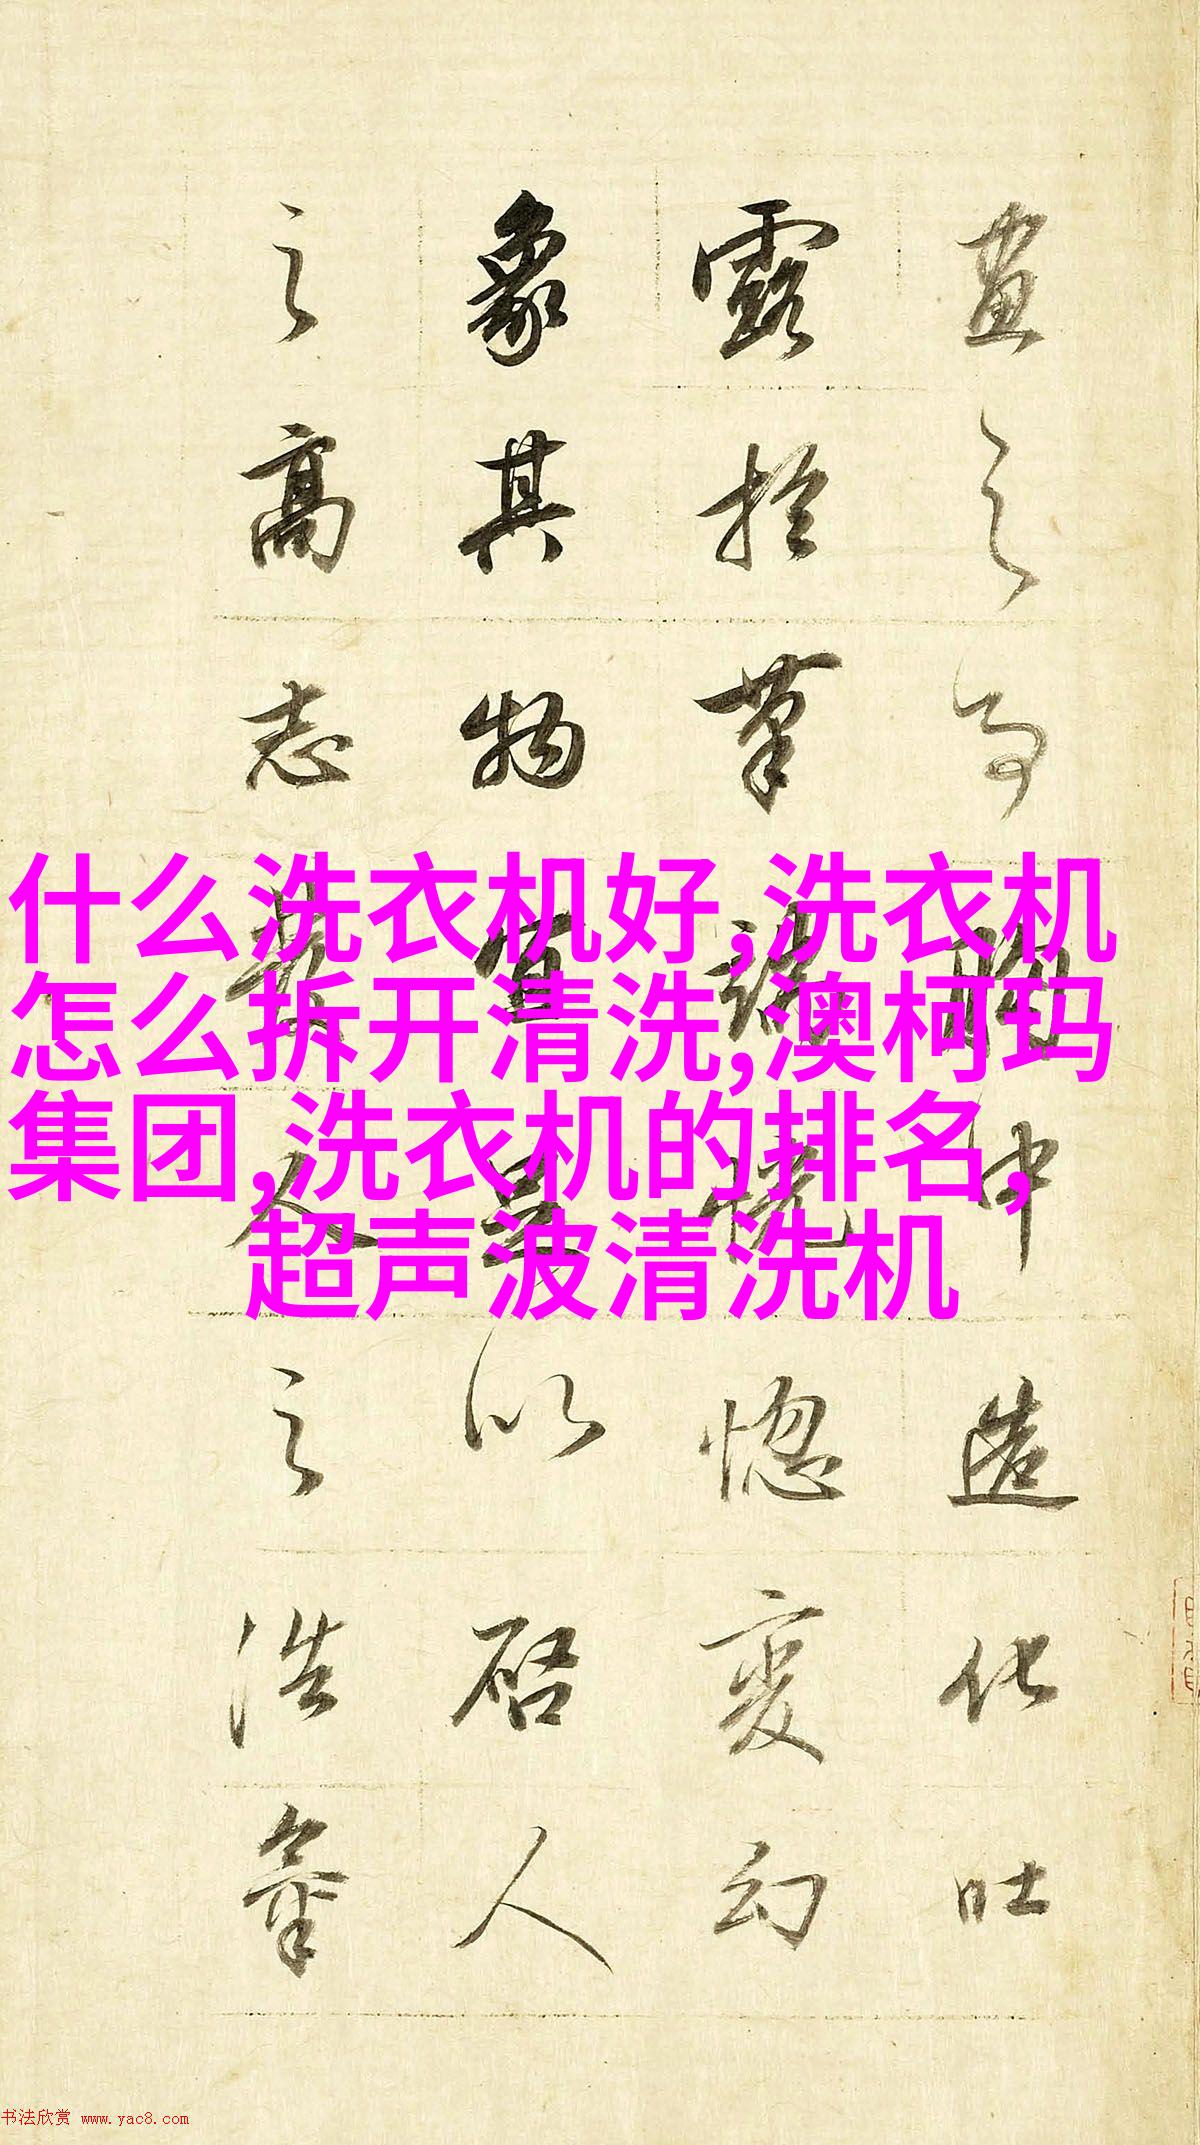 画之为 胸中造化吐
露於笔 恍惚变幻
象其物宜 以启人
之高志 人之浩气
什么洗衣机好,洗衣机
怎么拆开清洗,澳柯玛
集团,洗衣机的排名,
超声波清洗机
书法欣赏 www.yac8.com